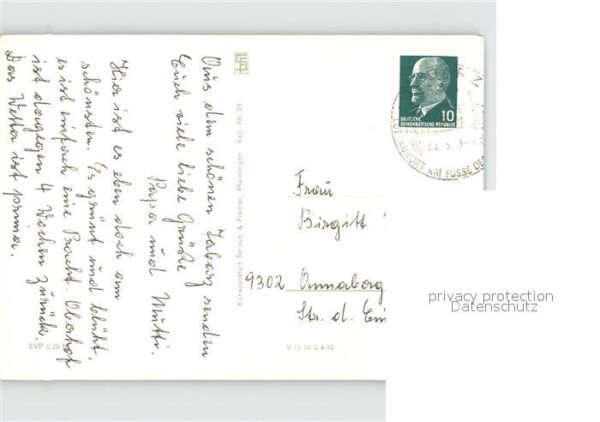 Aus dem schönen Tabarz senden
Euch viele liebe Grüße
Papa und Mutti.
Hier ist es eben doch am
schönsten. Es grünt und blüht,
es ist einfach eine Pracht. Oberhof
ist dagegen 4 Wochen zurück.
Das Wetter ist prima.
EVP 0,20
Kunstanstalt Straub & Fischer, Meiningen
V 11 50 S 4/72
10
DEUTSCHE
DEMOKRATISCHE REPUBLIK
AM FUSSE DE
Frau
Birgitt
9302 Annaberg
Str. d. Ein
privacy protection
Datenschutz